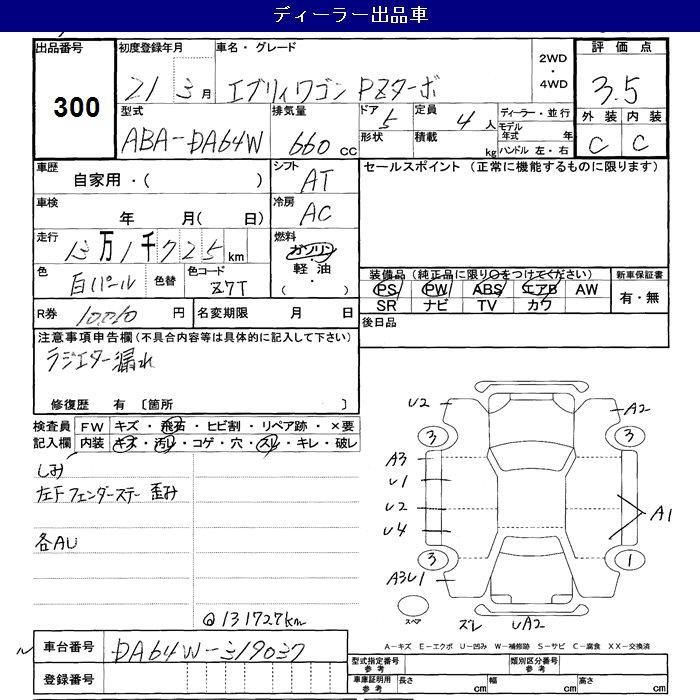 ディーラー出品車
出品番号
300
初度登録年月
21 3 月
車名・グレード
エブリィワゴン PZターボ
2WD
・
4WD
評価点
3.5
外装 内装
C C
型式
ABA-DA64W
排気量
660 cc
ドア 5
形状
定員 4 人
積載 kg
ディーラー・並行
モデル年式 年
ハンドル 左・右
車歴
自家用・( )
シフト
AT
セールスポイント (正常に機能するものに限ります)
車検
年 月( 日)
冷房
AC
走行
13万1千725 km
燃料
ガソリン
・
軽油
( )
色
白パール
色替
色コード
Z7T
装備品(純正品に限り○をつけてください)
PS PW ABS エアB AW
SR ナビ TV カワ
新車保証書
有・無
R券 10,010 円
名変期限 月 日
後日品
注意事項申告欄(不具合内容等は具体的に記入して下さい)
ラジエター漏れ
修復歴 有 〔箇所 〕
検査員記入欄
FW キズ・飛石・ヒビ割・リペア跡・×要
内装 キズ・汚レ・コゲ・穴・スレ・キレ・破レ
しみ
左Fフェンダーステー 歪み
各AU
@131727km
U2
A2
3
3
A3
U1
U2
U4
A1
3
1
A3U1
スペア
ズレ
UA2
A-キズ E-エクボ U-凹み W-補修跡 S-サビ C-腐食 XX-交換済
車台番号 DA64W-319037
登録番号
型式指定番号 参考
類別区分番号 参考
車庫証明用 参考
長さ cm
幅 cm
高さ cm